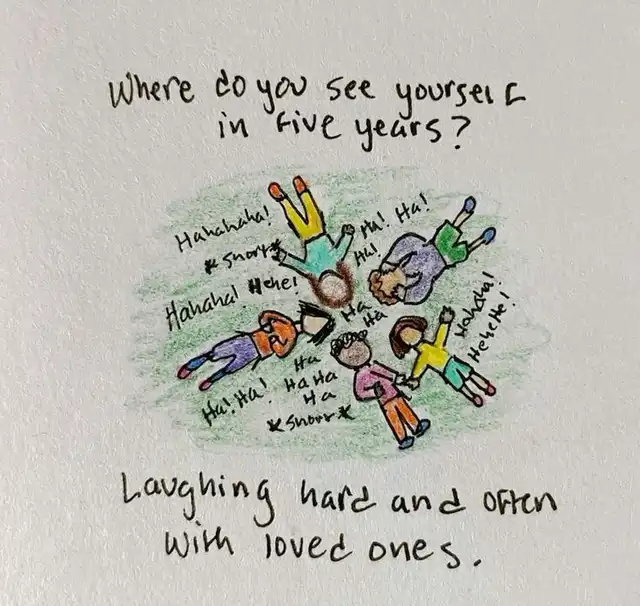 Where do you see yourself
in five years?
Hahahaha!
*snort*
Hahaha! Hehe!
Ha! Ha!
Ha!
Ha
Ha
Hahaha!
HeheHe!
Ha! Ha!
Ha
HaHa
Ha
*snort*
Laughing hard and often
with loved ones.